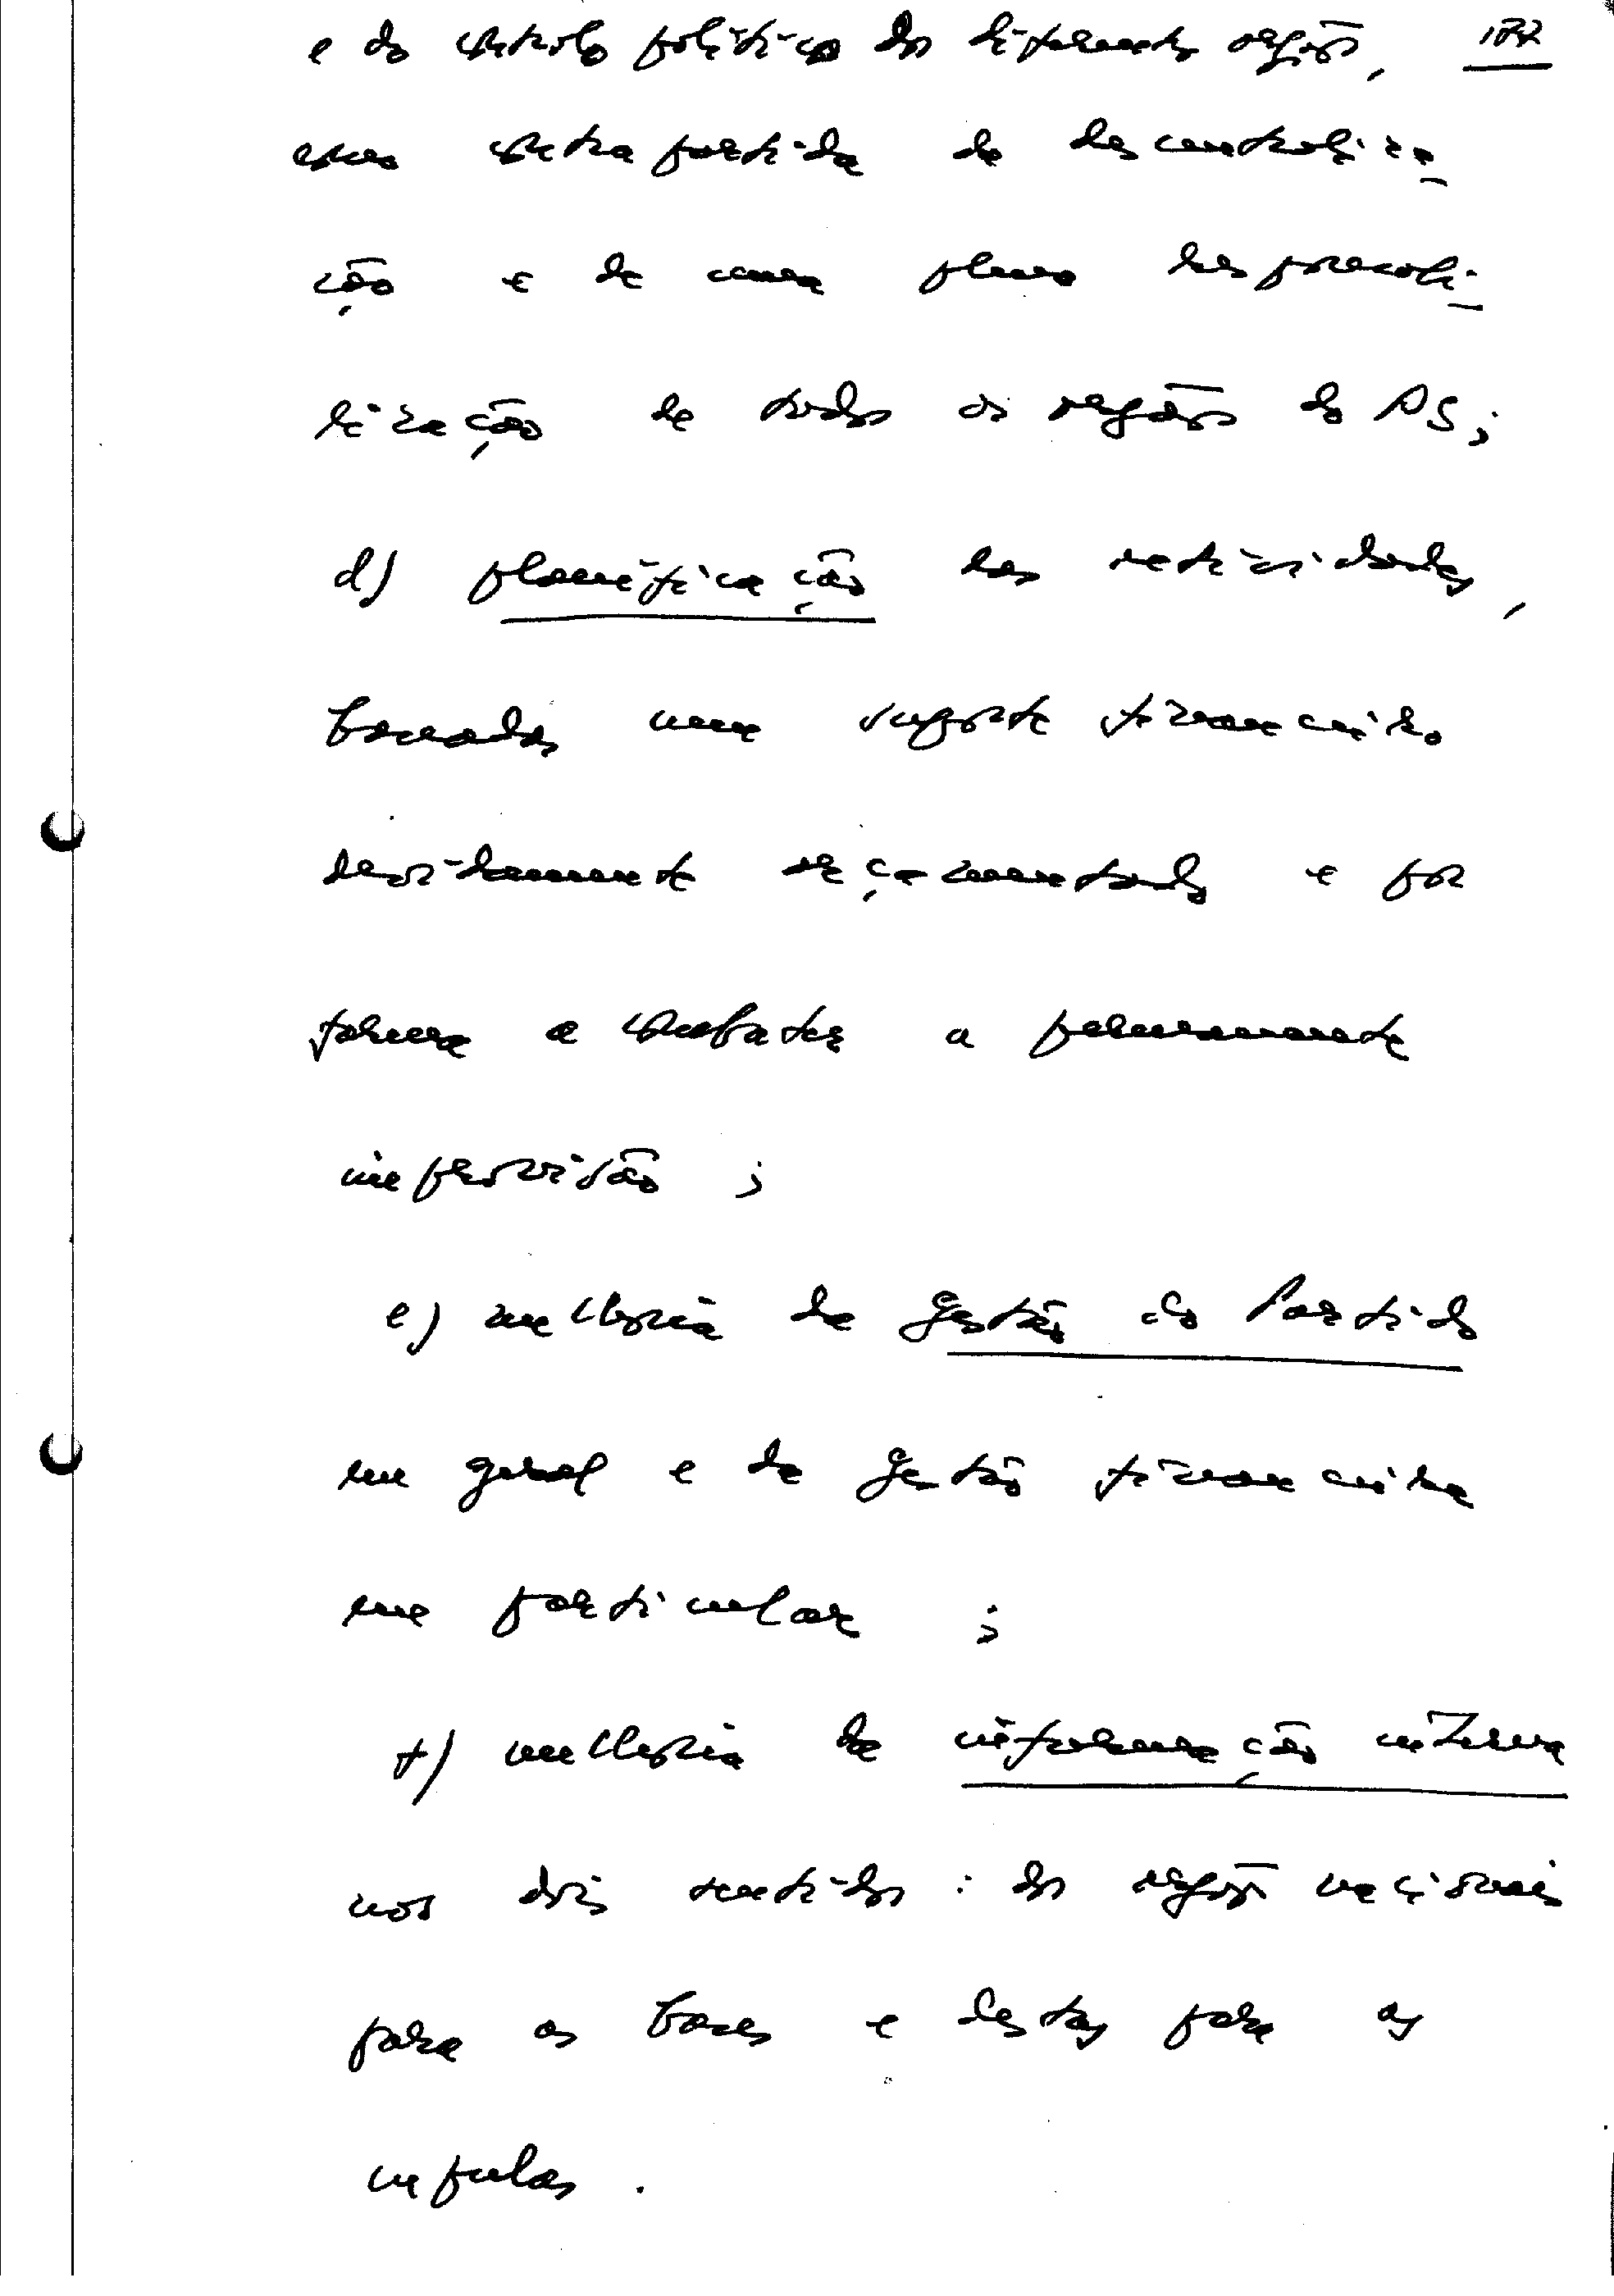 e do controlo político dos diferentes orgãos,
como contrapartida da descentraliza-
ção e de uma plena responsabi-
lização de todos os orgãos do PS;
d) planificação das actividades,
baseada num suporte financeiro
devidamente orçamentado e por
forma a combater a permanente
improvisão;
e) melhoria da gestão do Partido
em geral e da gestão financeira
em particular;
f) melhoria da informação interna
nos dois sentidos: dos orgãos nacionais
para as bases e destas para as
cúpulas.